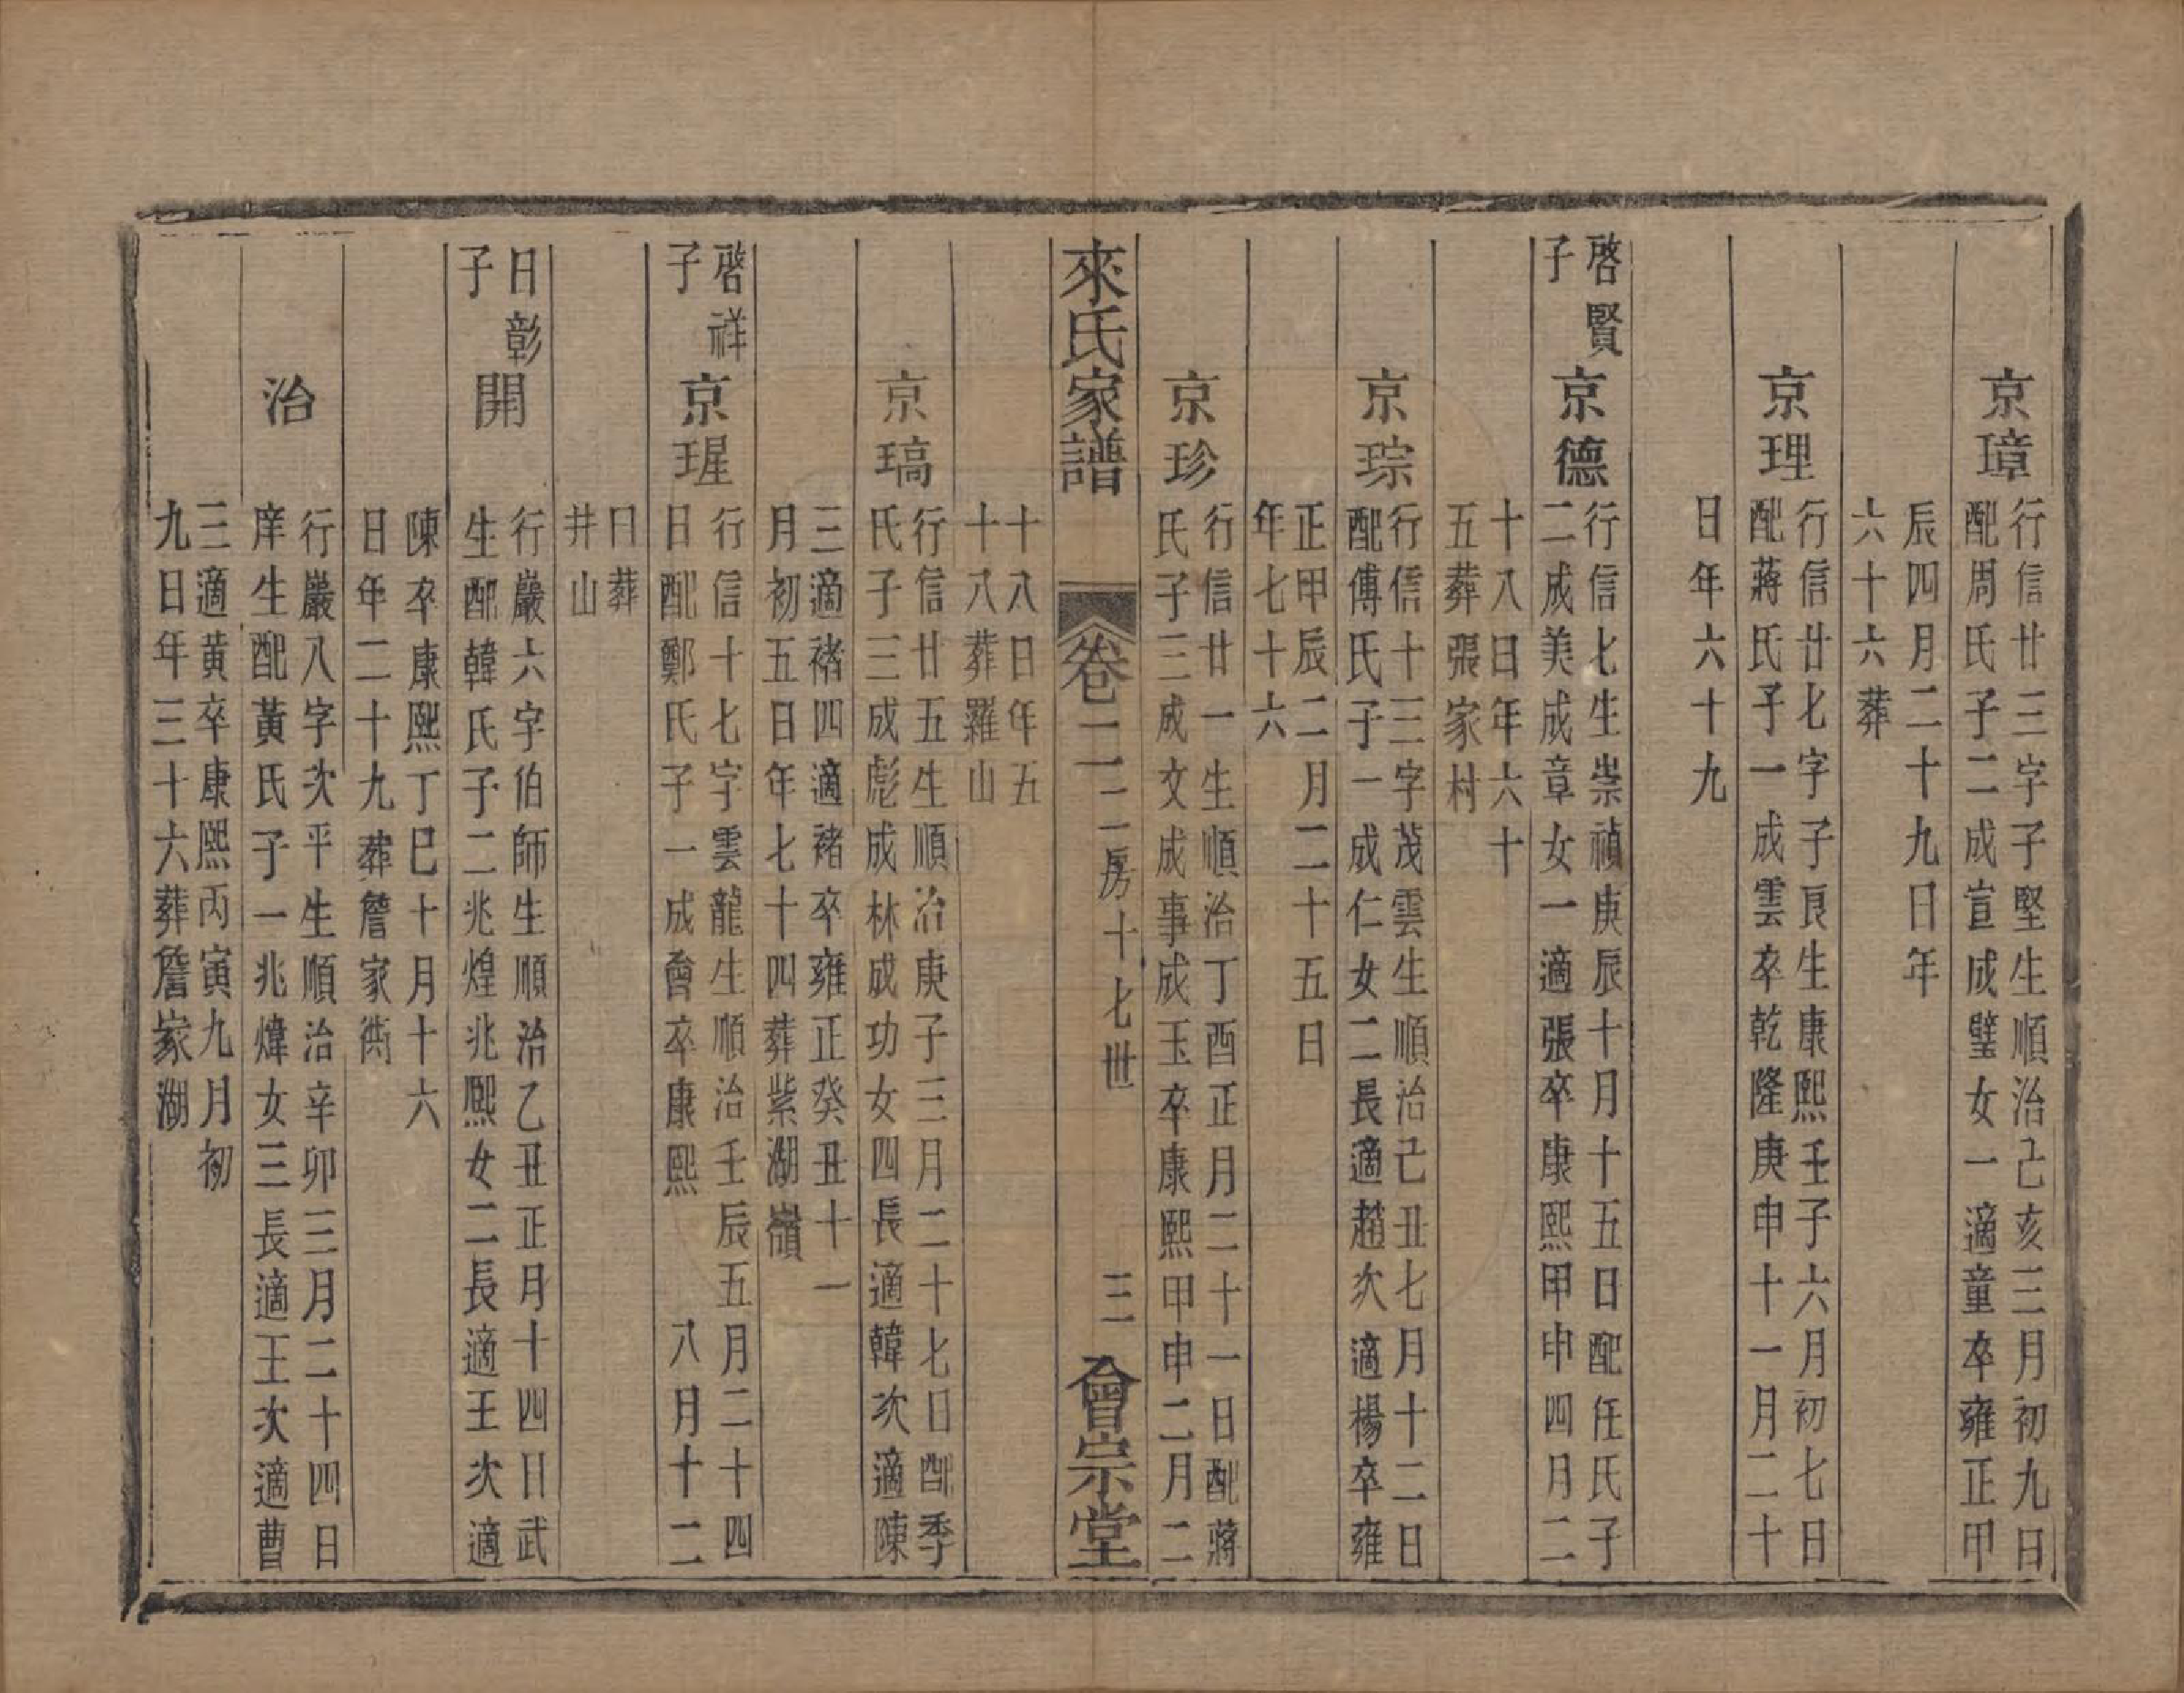 京璋
行信廿三字子堅生順治己亥三月初九日
配周氏子二成宣成璧女一適童卒雍正甲
辰四月二十九日年
六十六葬
京理
行信廿七字子良生康熙壬子六月初七日
配蔣氏子一成雲卒乾隆庚申十一月二十
日年六十九
啓賢
子
京德
行信七生崇禎庚辰十月十五日配任氏子
二成美成章女一適張卒康熙甲申四月二
十八日年六十
五葬張家村
京琮
行信十三字茂雲生順治己丑七月十二日
配傅氏子一成仁女二長適趙次適楊卒雍
正甲辰二月二十五日
年七十六
京珍
行信廿一生順治丁酉正月二十一日配蔣
氏子三成文成事成玉卒康熙甲申二月二
來氏家譜
卷二
二房十七世
三
會宗堂
十八日年五
十八葬羅山
京㻏
行信廿五生順治庚子三月二十七日配季
氏子三成彪成林成功女四長適韓次適陳
三適褚四適褚卒雍正癸丑十一
月初五日年七十四葬紫湖嶺
啓祥
子
京瑆
行信十七字雲龍生順治壬辰五月二十四
日配鄭氏子一成會卒康熙八月十二
日葬
井山
日彰
子
開
行嚴六字伯師生順治乙丑正月十四日武
生配韓氏子二兆煌兆熙女二長適王次適
陳卒康熙丁巳十月十六
日年二十九葬詹家衖
治
行嚴八字次平生順治辛卯三月二十四日
庠生配黃氏子一兆煒女三長適王次適曹
三適黃卒康熙丙寅九月初
九日年三十六葬詹家湖